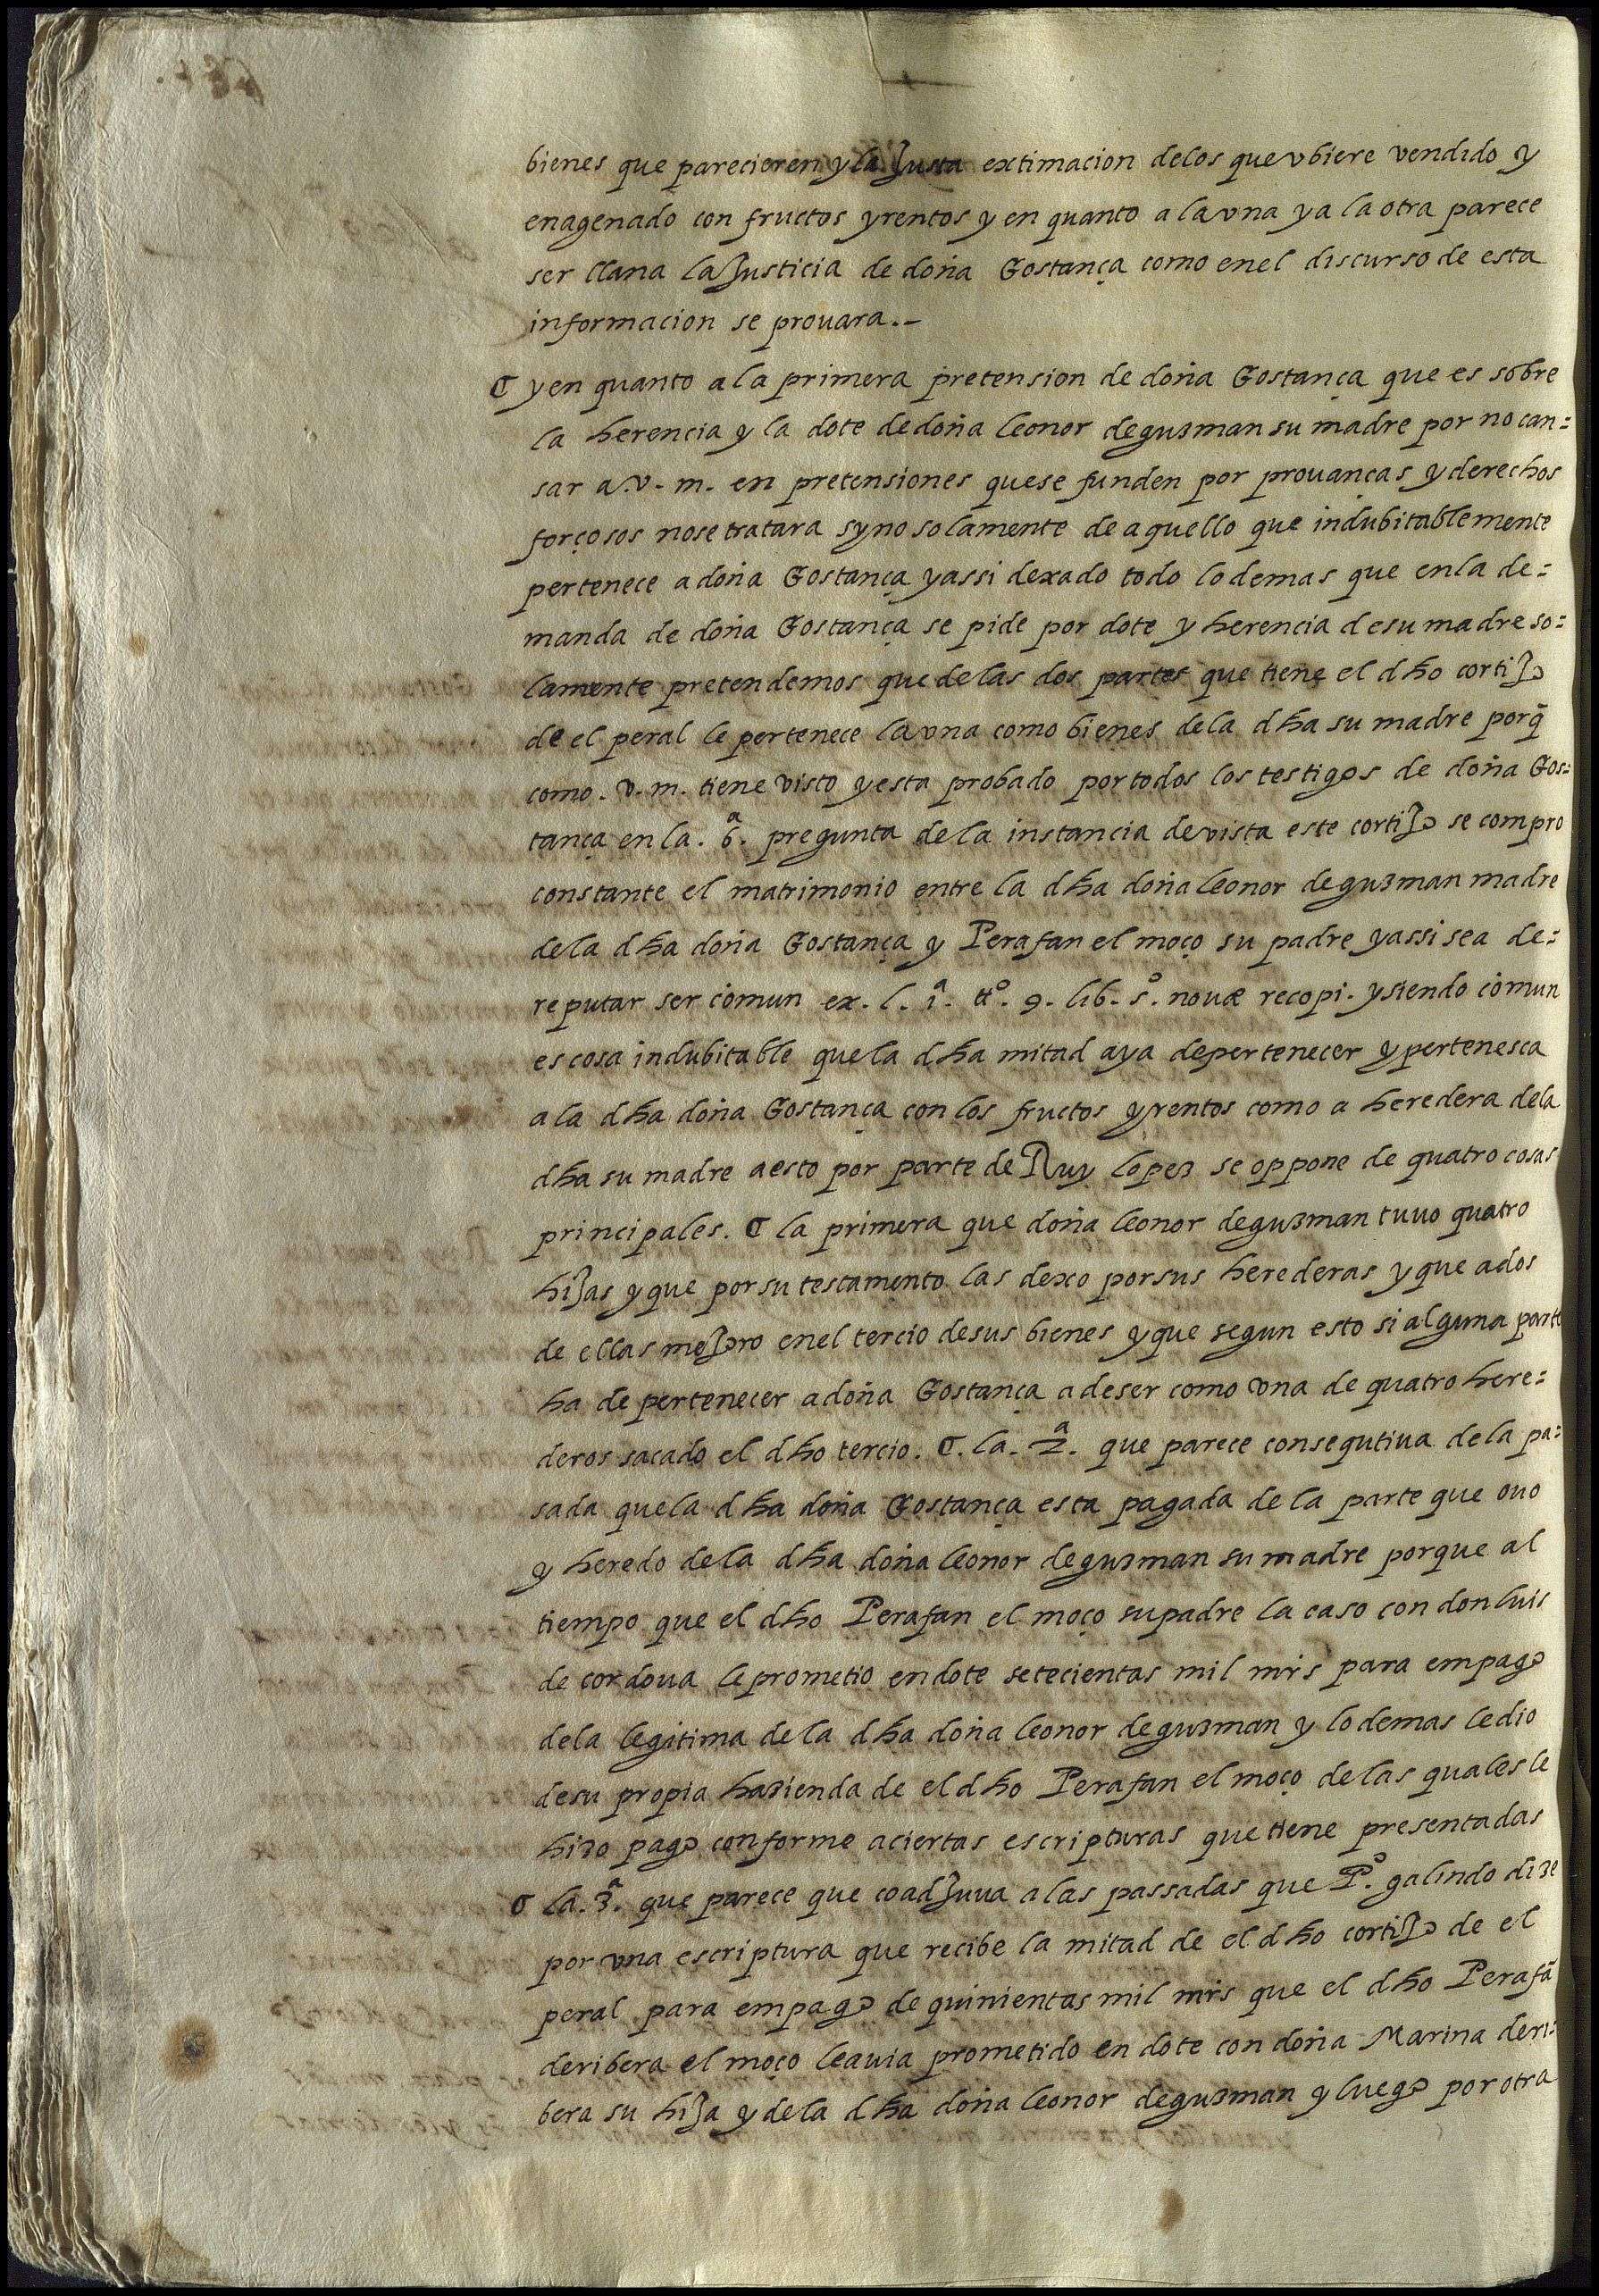 bienes que parecieren y la Justa extimacion delos que vbiere vendido y
enagenado con fructos y rentos y en quanto a la vna y a la otra parece
ser llana la Justicia de doña Gostança como enel discurso de esta
informacion se prouara.-
C y en quanto a la primera pretension de doña Gostança que es sobre
la herencia y la dote de doña leonor de guzman su madre por no can=
sar a.v.m. en pretensiones que se funden por prouanças y derechos
forçosos no se tratara syno solamente de aquello que indubitablemente
pertenece a doña Gostança y assi dexado todo lo demas que en la de=
manda de doña Gostança se pide por dote y herencia de su madre so=
lamente pretendemos que de las dos partes que tiene el dho cortiJo
de el peral le pertenece la vna como bienes dela dha su madre porq̃
como. v. m. tiene visto y esta probado por todos los testigos de doña Gos=
tança en la. 6ª. pregunta de la instancia de vista este cortiJo se compro
constante el matrimonio entre la dha doña leonor de guzman madre
de la dha doña Gostança y Perafan el moço su padre y assi sea de=
reputar ser comun ex. l. 1ª. tt°. 9. lib. 5°. nouæ recopi. y siendo comun
es cosa indubitable que la dha mitad aya de pertenecer y pertenesca
a la dha doña Gostança con los fructos y rentos como a heredera dela
dha su madre a esto por parte de Ruy lopez se oppone de quatro cosas
principales. C la primera que doña leonor de guzman tuuo quatro
hiJas y que por su testamento las dexo por sus herederas y que a dos
de ellas meJoro enel tercio de sus bienes y que segun esto si alguna parte
ha de pertenecer a doña Gostança a de ser como vna de quatro here=
deros sacado el dho tercio. C. la. 2ª. que parece consegutiua de la pa=
sada que la dha doña Gostança esta pagada de la parte que ouo
y heredo de la dha doña leonor de guzman su madre porque al
tiempo que el dho Perafan el moço su padre la caso con don luis
de cordoua le prometio en dote setecientas mil mrs para em pago
dela legitima de la dha doña leonor de guzman y lo demas le dio
de su propia hazienda de el dho Perafan el moço de las quales le
hizo pago conforme a ciertas escripturas que tiene presentadas
C la. 3ª. que parece que coadJuua a las passadas que P°. galindo dize
por vna escriptura que recibe la mitad de el dho cortiJo de el
peral para em pago de quinientas mil mrs que el dho Perafã
de ribera el moço le auia prometido en dote con doña Marina de ri=
bera su hiJa y de la dha doña leonor de guzman y luego por otra